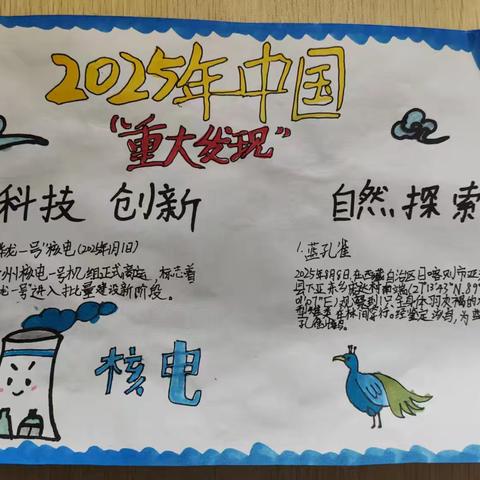 2025年中国
"重大发现"
科技 创新
自然 探索
龙一号"核电(2025年1月1日)
州核电一号机组正式商运,标志着
龙一号"进入批量建设新阶段。
核电
1.蓝孔雀
2025年8月8日,在西藏自治区日喀则市亚
县下亚东乡
(27°13'43"N,89°
0'07"E)观察到1只全身体羽
在林间穿行。经鉴定
为蓝
孔雀